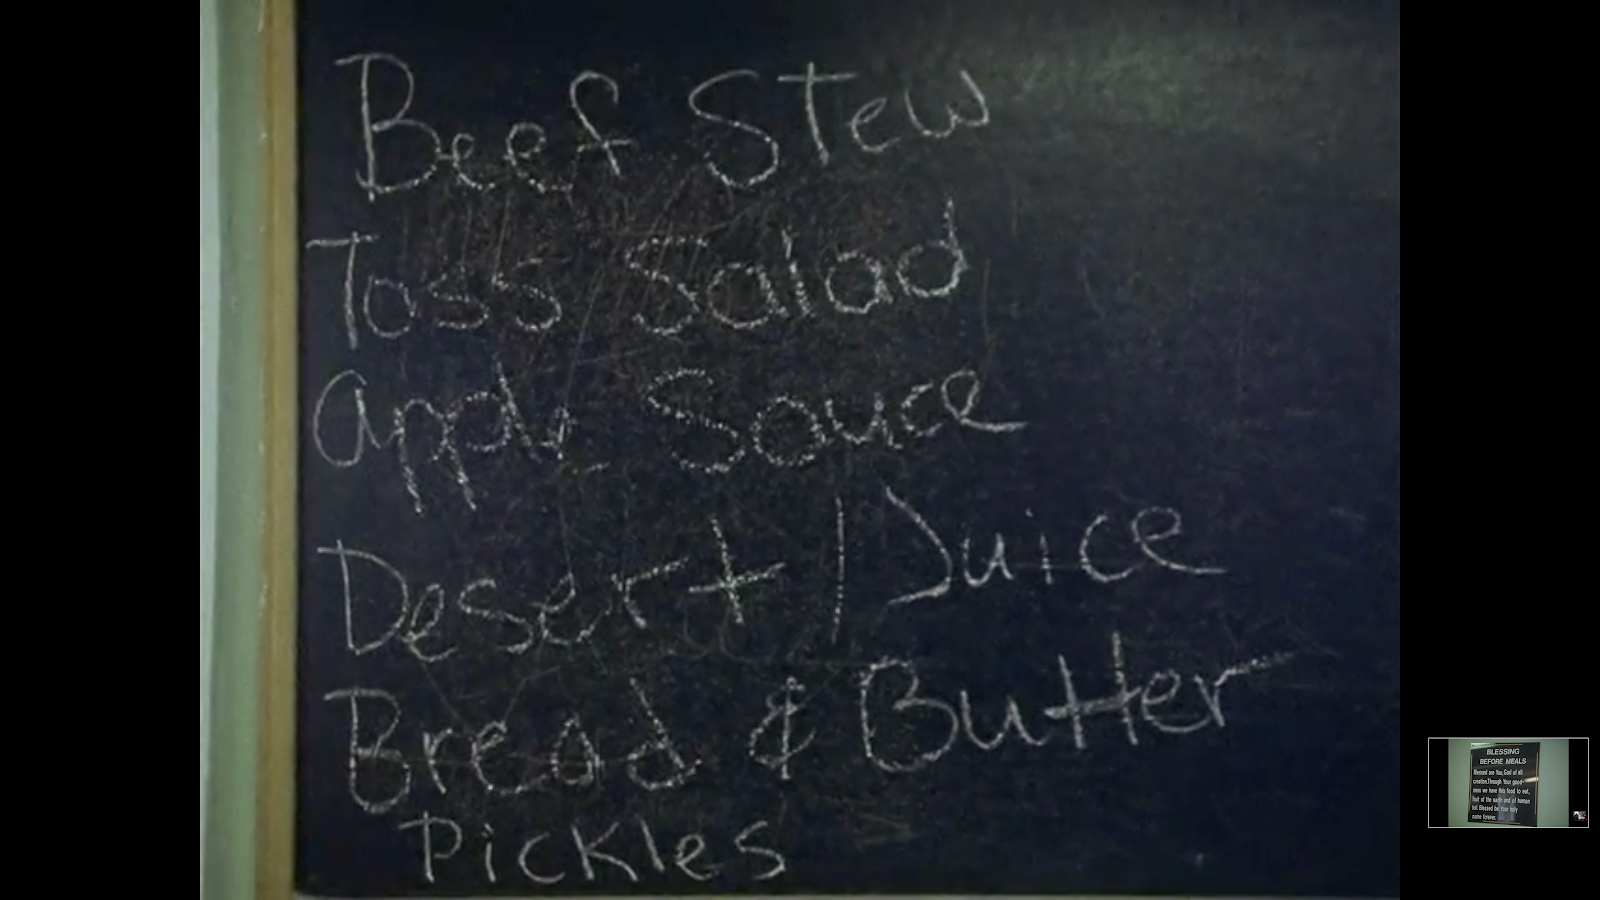 Beef Stew
Toss Salad
Apple Sauce
Desert / Juice
Bread & Butter
Pickles
BLESSING
BEFORE MEALS
Blessed are You, God of all
creation. Through Your good-
ness we have this food to eat,
fruit of the earth and of human
toil. Blessed be Your holy
name forever.